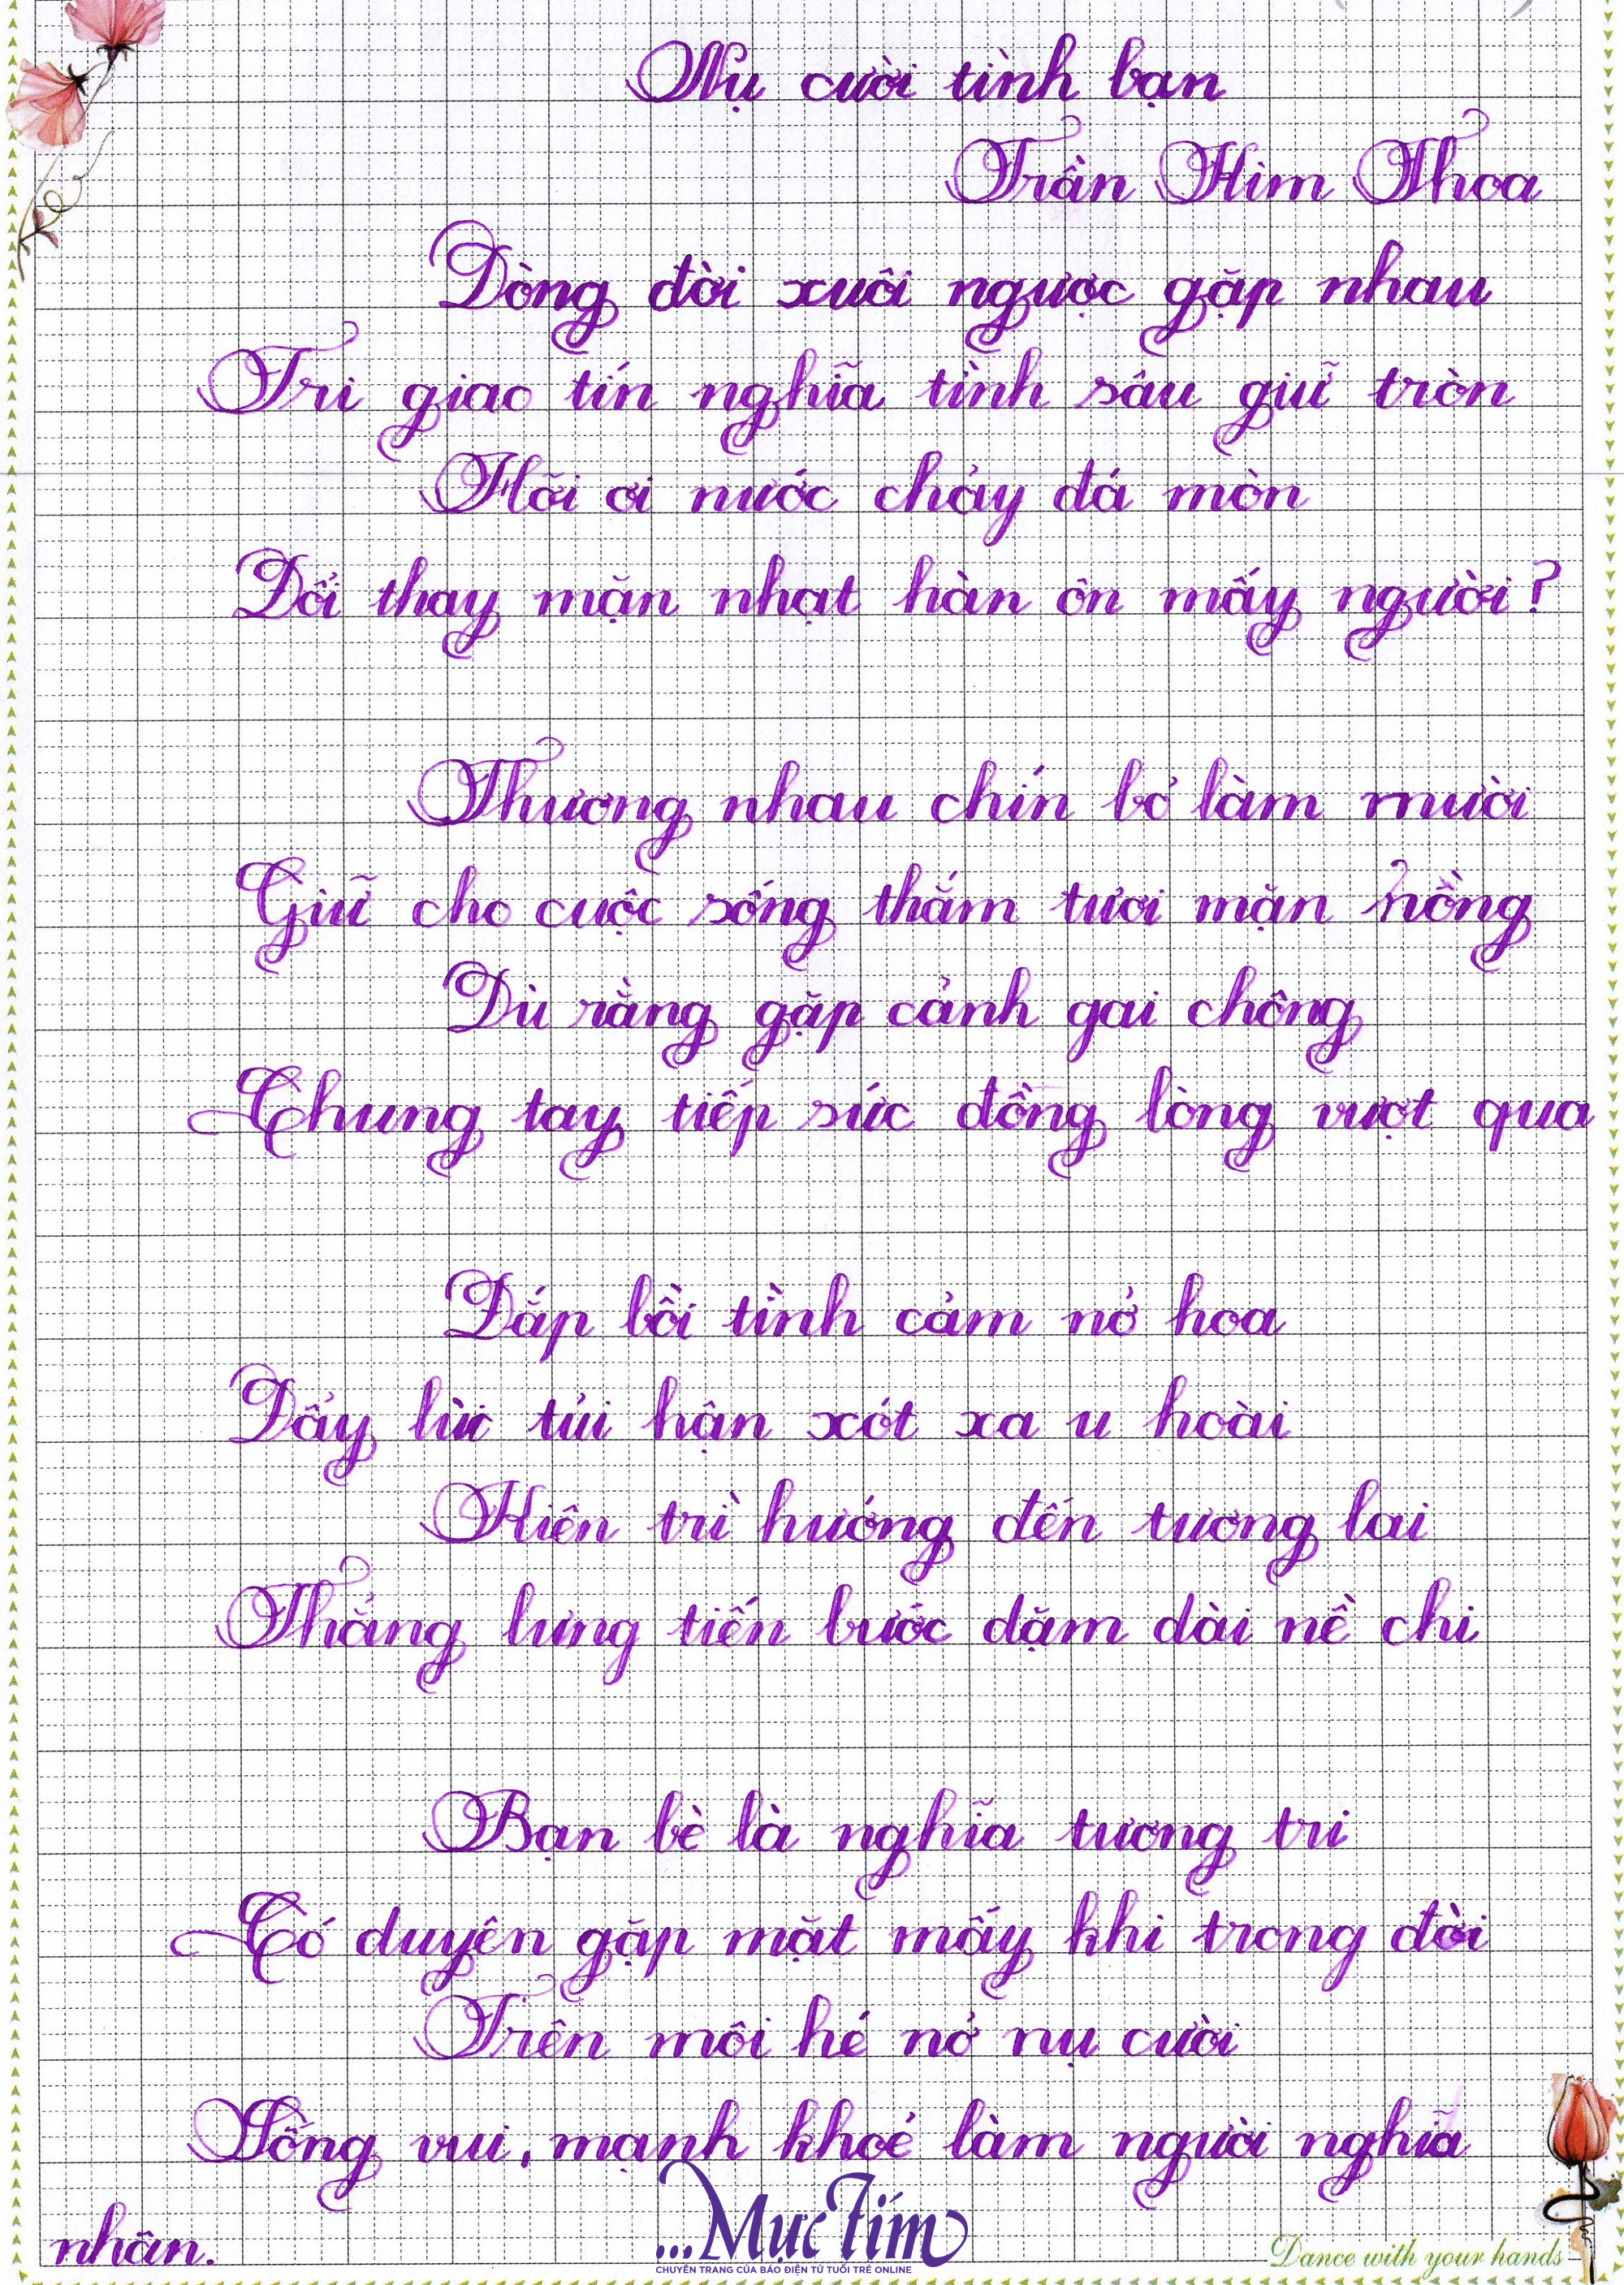 Nụ cười tình bạn
Trần Kim Thoa
Dòng đời xuôi ngược gặp nhau
Tri giao tín nghĩa tình sâu giữ tròn
Hỡi ơi nước chảy đá mòn
Đổi thay mặn nhạt hàn ôn mấy người?
Thương nhau chín bỏ làm mười
Giữ cho cuộc sống thắm tươi mặn nồng
Dù rằng gặp cảnh gai chông
Chung tay tiếp sức đồng lòng vượt qua
Đắp bồi tình cảm nở hoa
Đẩy lùi tủi hận xót xa u hoài
Kiên trì hướng đến tương lai
Thẳng lưng tiến bước dặm dài nề chi
Bạn bè là nghĩa tương tri
Có duyên gặp mặt mấy khi trong đời
Trên môi hé nở nụ cười
Sống vui, mạnh khoẻ làm người nghĩa
nhân.
...Mực Tím
CHUYÊN TRANG CỦA BÁO ĐIỆN TỬ TUỔI TRẺ ONLINE
Dance with your hands